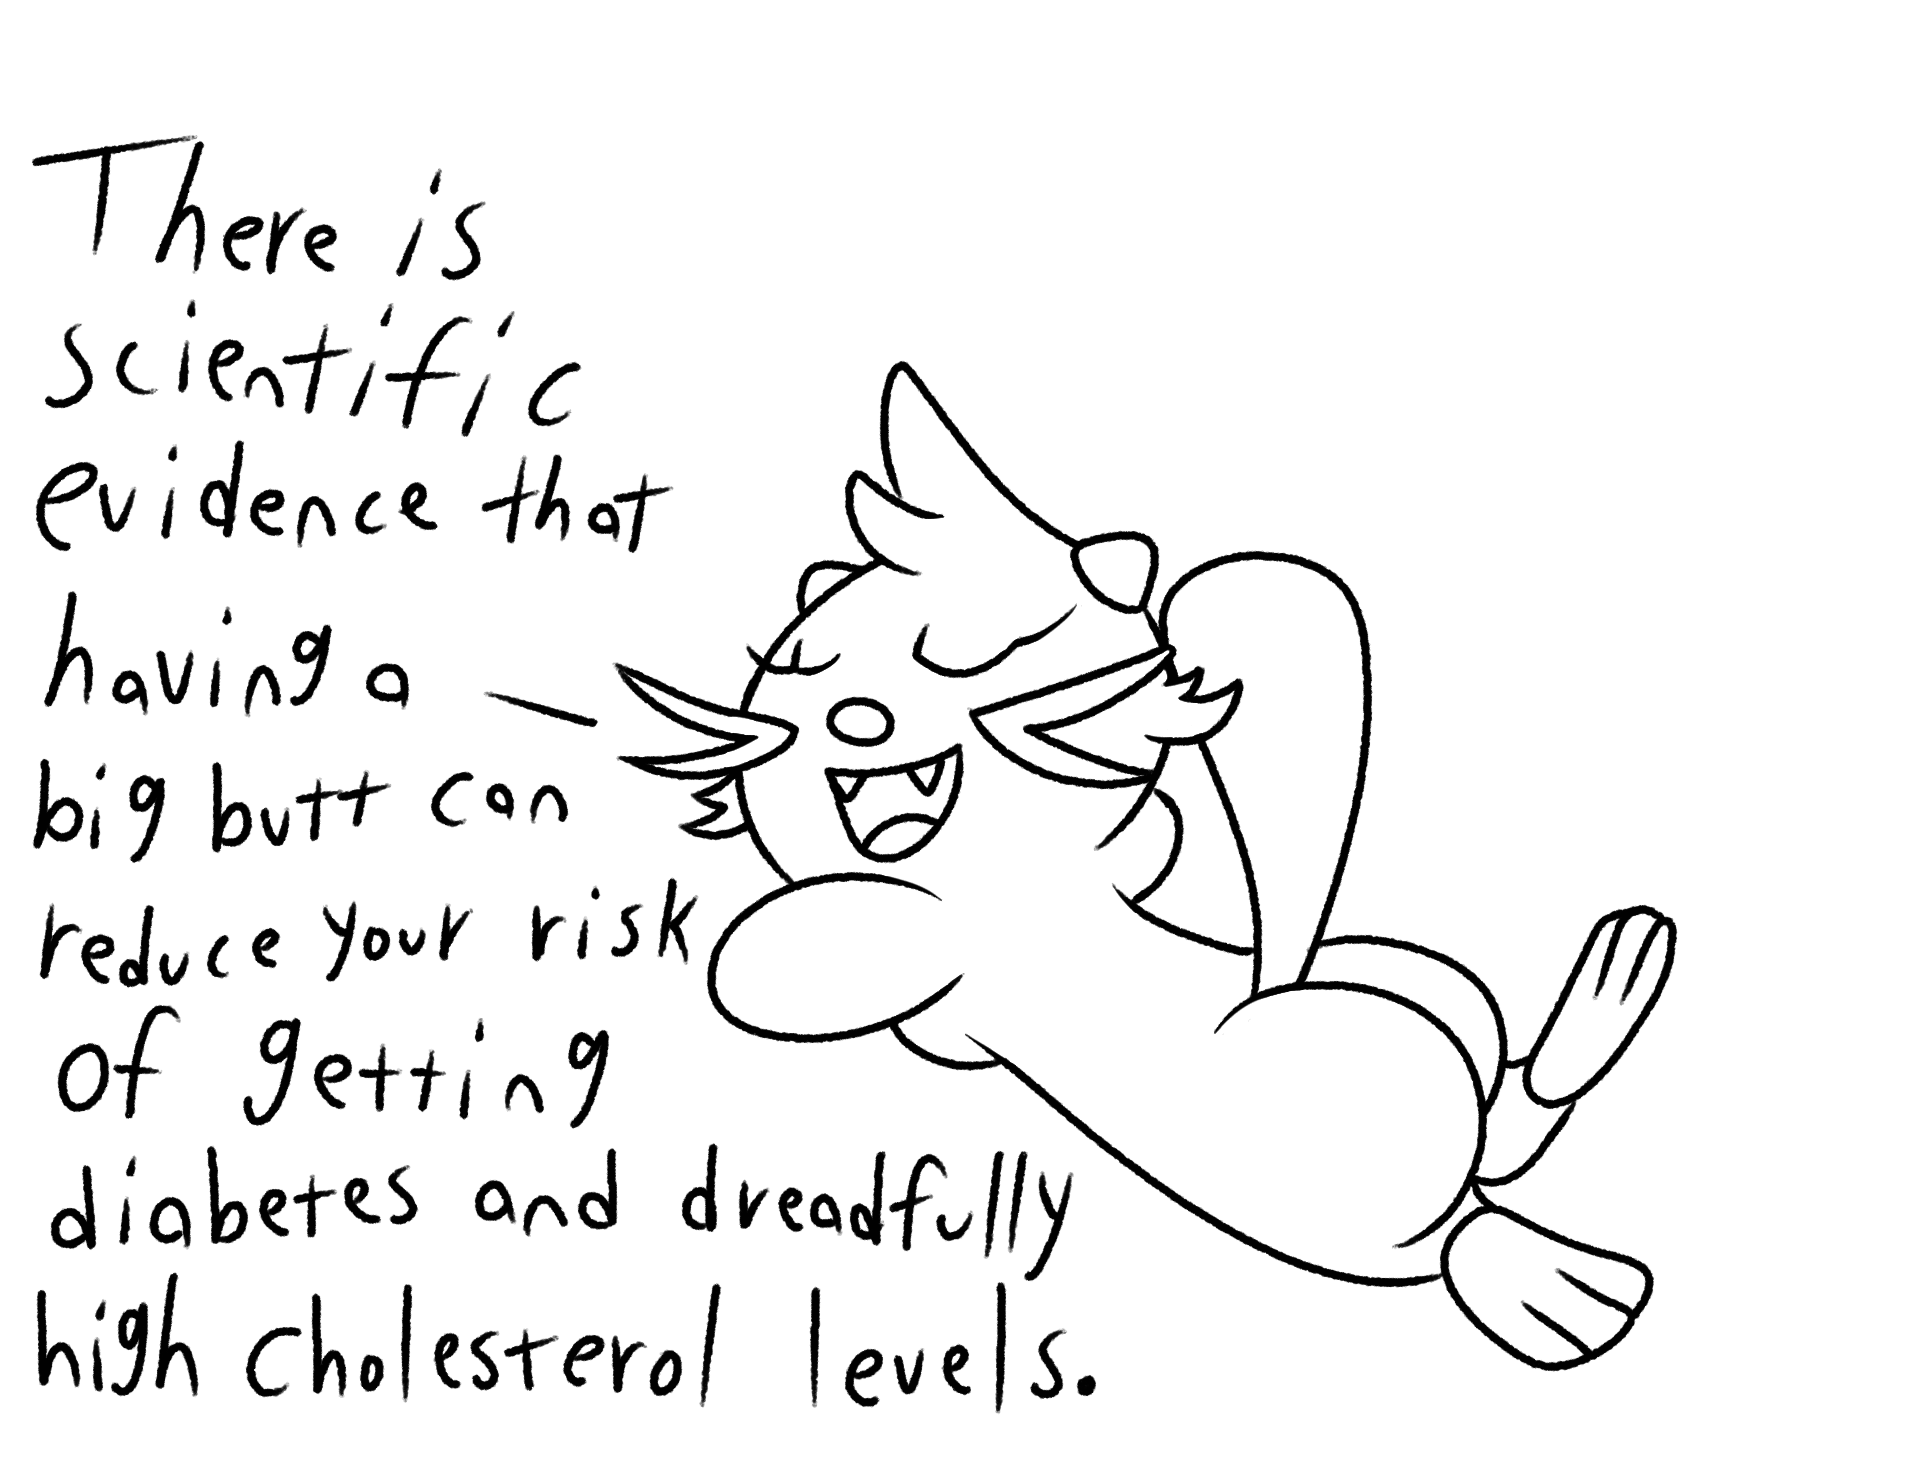 There is
scientific
evidence that
having a
big butt can
reduce your risk
of getting
diabetes and dreadfully
high cholesterol levels.